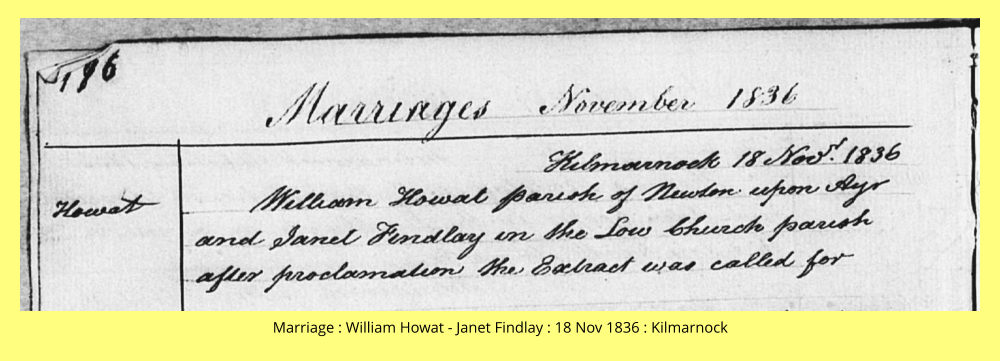 196
Marriages November 1836
Kilmarnock 18 Novr. 1836
Howat
William Howat parish of Newton upon Ayr
and Janet Findlay in the Low Church parish
after proclamation the Extract was called for
Marriage : William Howat - Janet Findlay : 18 Nov 1836 : Kilmarnock